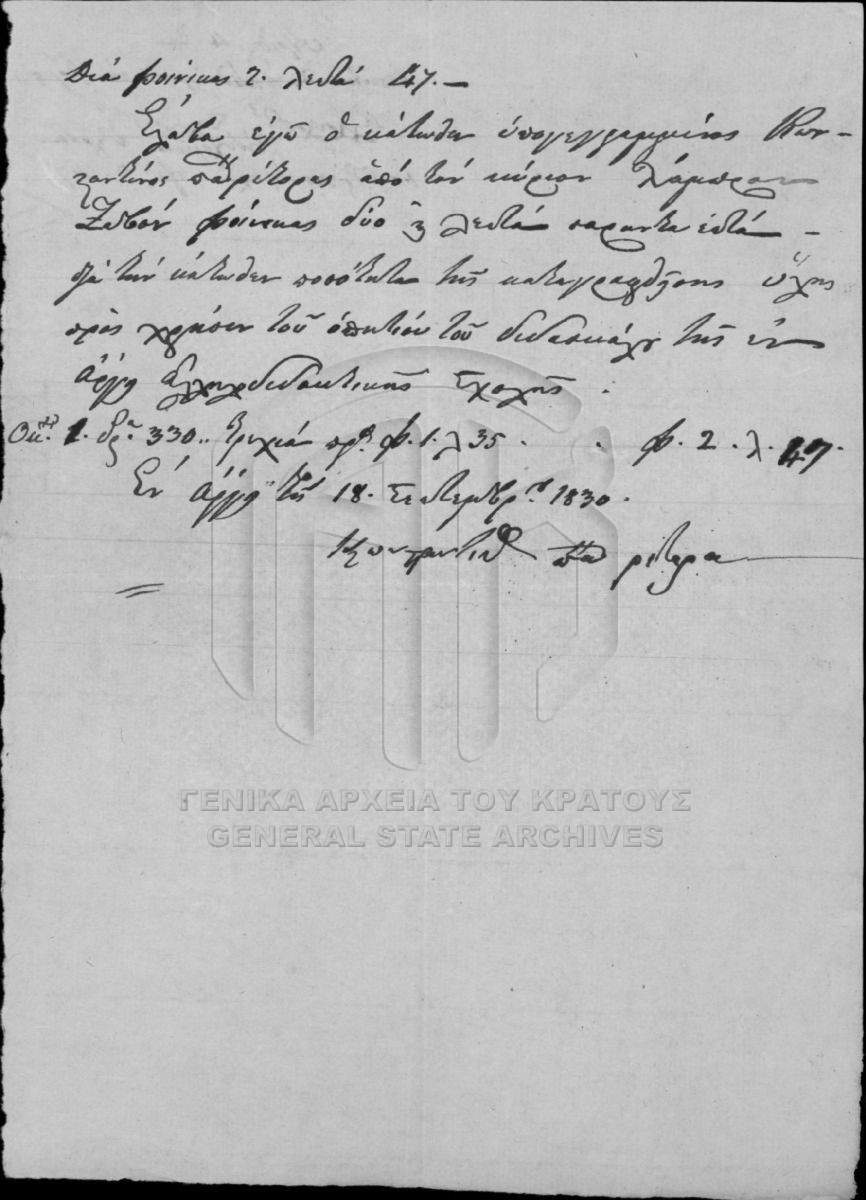 Διά φοίνικας 2. λεπτά 47. —
Έλαβα εγώ ο κάτωθεν υπογεγραμμένος Κων-
σταντίνος παπρίτορας από τον κύριον Λάμπρον
φοίνικας δύο & λεπτά σαράντα επτά —
διά την κάτωθεν ποσότητα της καταγραφθείσης ύλης
προς χρήσιν του οσπιτίου του διδασκάλου της εν
Άργει αλληλοδιδακτικής Σχολής .
Οκ. 1. δρ. 330 .. προς φ. 1. λ 35 . . φ. 2 . λ. 47.
Εν Άργει τη 18. Σεπτεμβρ. 1830.
Κωνσταντίνος ρίτορα
ΓΕΝΙΚΑ ΑΡΧΕΙΑ ΤΟΥ ΚΡΑΤΟΥΣ
GENERAL STATE ARCHIVES